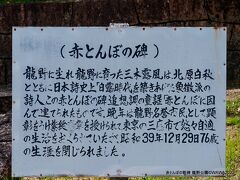 (赤とんぼの碑)
龍野に生れ龍野に育った三木露風は、北原白秋
とともに日本詩史上「白露時代」を築きあげた象徴派の
詩人この赤とんぼの碑は追想調の童謡赤とんぼに因
んで建てられたもので、晩年は龍野名誉市民として顕
彰をうけ紫綬を授けられて東京の三鷹市で悠々自適
の生活をおくっていたが昭和39年12月29日76歳
の生涯を閉じられました。
赤とんぼの石碑 龍野公園